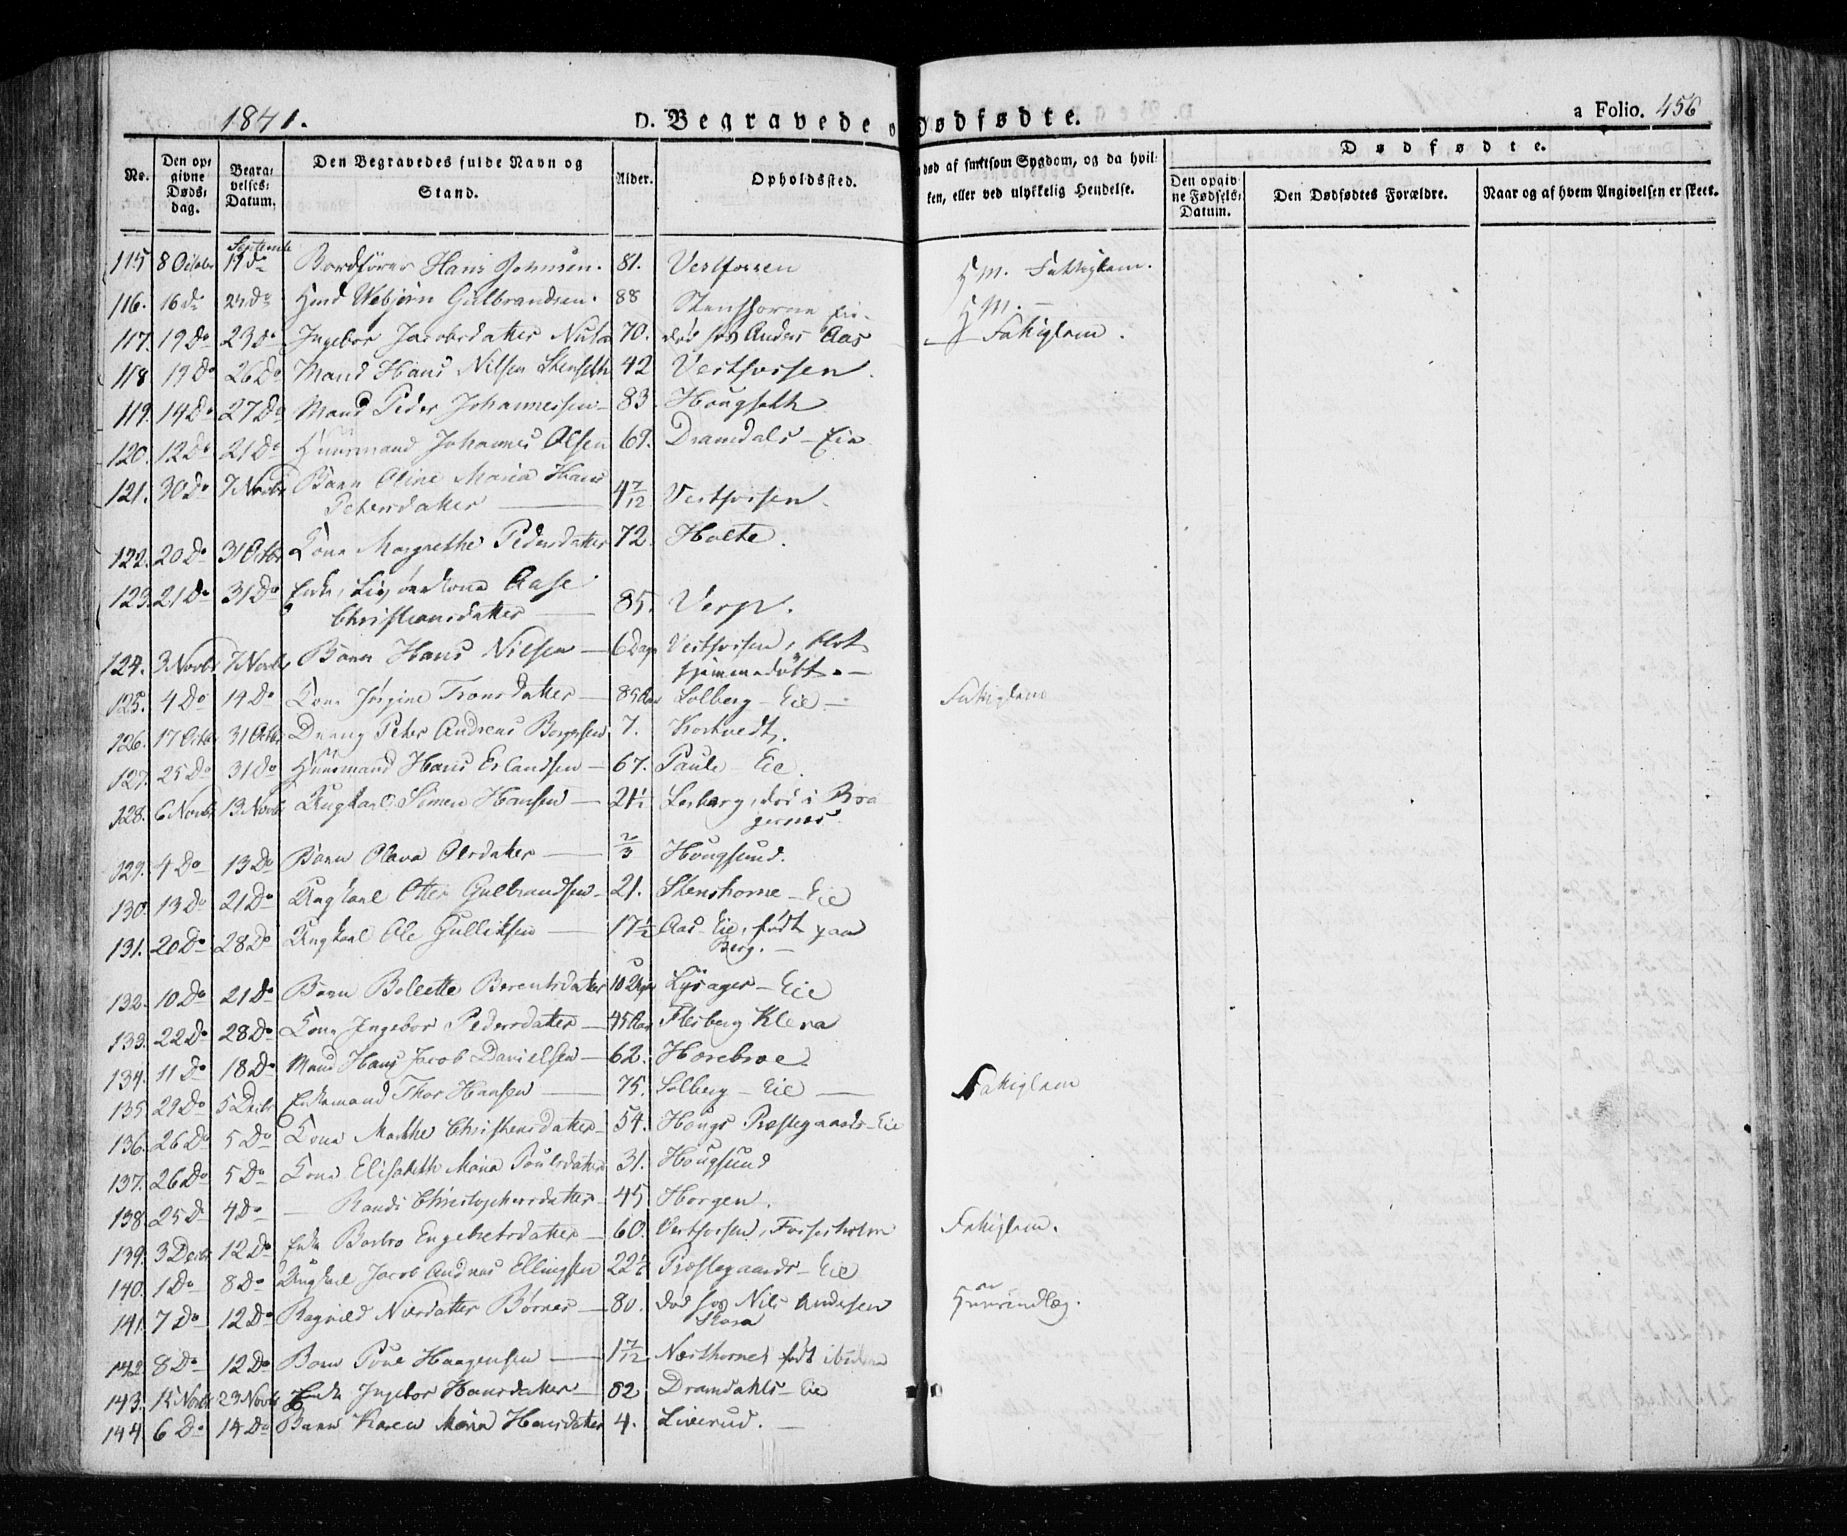 1841.
D. Begravede o
Dødfødte.
a Folio. 456
No.
Den opgivne Dødsdag.
Begravelses-Datum.
Den Begravedes fulde Navn og Stand.
Alder.
Opholdssted.
død af smitsom Sygdom, og da hvilken, eller ved ulykkelig Hendelse.
Dødfødte.
Den opgivne Fødsels-Datum.
Den Dødfødtes Forældre.
Naar og af hvem Angivelsen er skeet.
115 8 October 17 Do Hans 81. Vestfossen Fattiglem.
116. 16 Do 24 Do Gulbrandsen. 88
117. 19 Do 23 Do Ingebor Jacobsdatter 70. død hos Anders Aas Fattiglem.
118 19 Do 26 Do Mand Hans Nilsen Stenseth 42 Vestfossen.
119. 14 Do 27 Do Mand Peder Johannessen 83. Hougseth
120. 12 Do 21 Do Huusmand Johannes Olsen 69. Dramdals - Eie
121. 30 Do 7 Novbr Barn Oline Maria Hans
Petersdatter 4 7/12 Vestfossen.
122. 20 Do 31 Octbr Kone Margrethe Pedersdatter 72. Holte.
123. 21 Do 31 Do Enke, Aase
Christiansdatter 85. Verp.
124. 3 Novbr 7 Novbr Barn Hans Nilsen 6 Dage Vestfossen, blot
hjemmedøbt.
125. 4 Do 14 Do Kone Jørgine Tronsdatter 85 Aar Solberg - Eie Fattiglem
126. 17 Octbr 31 Octbr Dreng Peter Andreas Borgersen 7. Kortvedt.
127. 25 Do 31 Do Huusmand Hans Erlandsen 67. Paule - Eie.
128. 6 Novbr 13 Novbr Ungkarl Simen Hansen 21½ Lerberg, død i Bra
gernes.
129. 4 Do 13 Do Barn Olava Olesdatter 2/3 Hougsund.
130. 13 Do 21 Do Ungkarl Otter Gulbrandsen 21. Stenshorne - Eie
131. 20 Do 28 Do Ungkarl Ole Gulliksen 17½ Aas - Eie, født paa
Berg.
132. 10 Do 21 Do Barn Bolette Berentsdatter 10 Uger Lysager - Eie
133. 22 Do 28 Do Kone Ingebor Pedersdatter 45 Aar Flesberg Kleva
134. 11 Do 18 Do Mand Hans Jacob Danielsen 62. Horebroe
135. 29 Do 5 Decbr Enkemand Thor Hansen 75. Solberg - Eie Fattiglem
136. 26 Do 5 Do Kone Marthe Christensdatter 54. Hougs Præstegaards-Eie
137. 26 Do 5 Do Kone Elisabeth Maria Poulsdatter 31. Hougsund
138. 25 Do 4 Do — Randi Christophersdatter 45 Horgen.
139. 3 Decbr 12 Do Enke Barbro Engebretsdatter 60. Vestfossen, Fossesholm Fattiglem.
140. 1 Do 8 Do Ungkarl Jacob Andreas Ellingsen 22½ Præstegaards - Eie
141. 7 Do 12 Do Ragnild 80. død hos Nils Andersen
142 8 Do 12 Do Barn Poul Haagensen 1 7/12 født
143. 15 Novbr 23 Novbr Enke Ingebor Hansdatter 82 Dramdahls - Eie
144. 6 Do 14 Do Barn Karen Maria Hansdatter 4. Liverud.